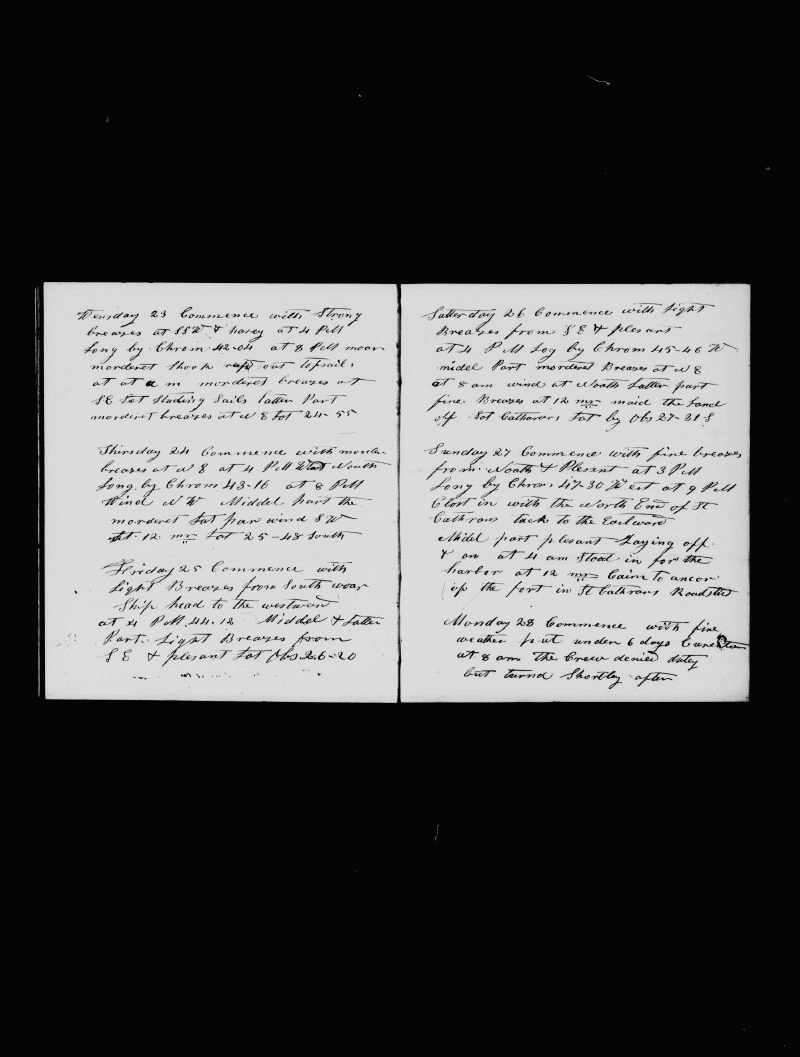 Wensday 23 Commence with Strong
breazes at SSW & hasey at 4 PM
Long by Chrom 42-04 at 8 PM moar
morderet Shook out topsails
at at a m morderet breazes at
SE Set Studing Sails latter Part
morderet breazes at N E Lat 24-55
Thirsday 24 Commence with morde-
breazes at N E at 4 PM North
Long. by Chrom 43-16 at 8 PM
Wind N W Middel part the
morderet Lat par wind S W
at 12 mr Lat 25-48 South
Friday 25 Commence with
Light Breazes from South woar
Ship head to the westward
at 4 PM. 44-12 Middel & Latter
Part. Light Breazes from
S E & plesant Lat Obs 26-20
Satterday 26 Commence with Light
Breazes from S E & plesant
at 4 PM Log by Chrom 45-46 W
midel Part morderet Breazes at N E
at 8 am wind at North Latter part
fine Breazes at 12 mr maid the Land
off Sot Catharans Lat by Obs 27-31 S
Sunday 27 Commence with fine breazes
from North & Plesent at 3 PM
Long by Chron 47-30 West at 9 PM
Clost in with the North End of St
Cathrans tack to the Eastward
Midel part plesant Laying off
& on at 4 am Stood in for the
harbor at 12 mr Caim to ancor
of the fort in St Cathrans Roadsted
Monday 28 Commence with fine
weather put under 6 days
at 8 am the Crew denied duty
but turnd Shortley after